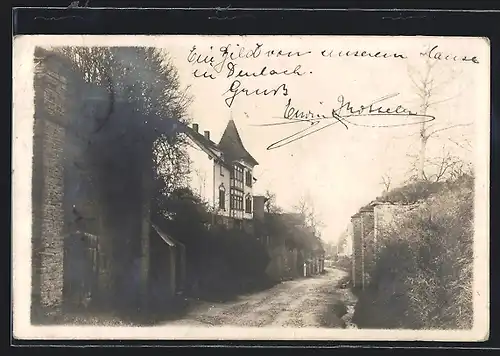 Ein Bild von unserem Hause
in Denbach.
Gruß
Erwin